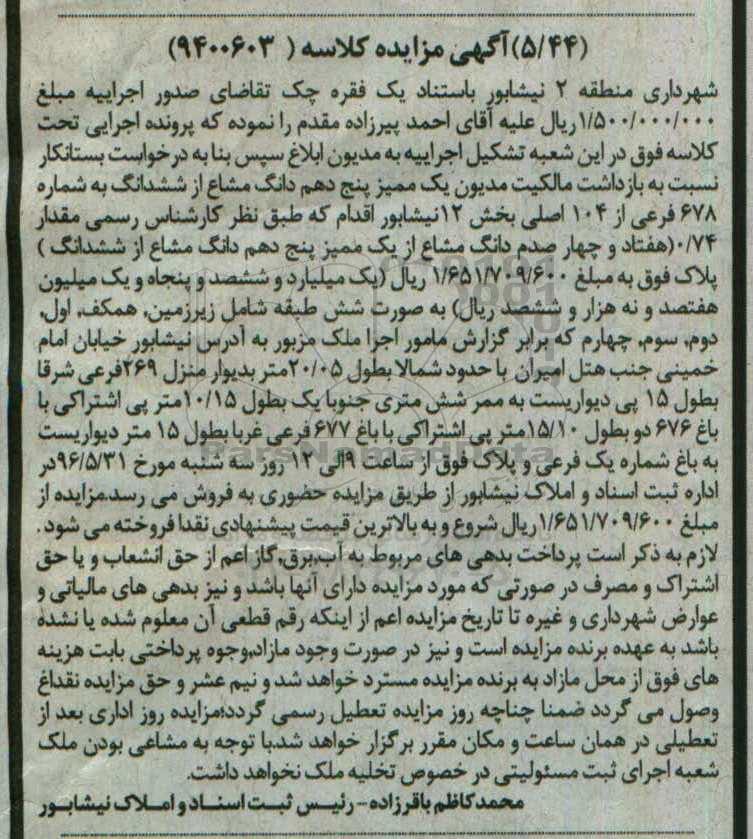 (۵/۴۴)آگهی مزایده کلاسه ( ۹۴۰۰۶۰۳)
شهرداری منطقه ۲ نیشابور باستناد یک فقره چک تقاضای صدور اجراییه مبلغ
۱/۵۰۰/۰۰۰/۰۰۰ریال علیه آقای احمد پیرزاده مقدم را نموده که پرونده اجرایی تحت
کلاسه فوق در این شعبه تشکیل اجراییه به مدیون ابلاغ سپس بنا به درخواست بستانکار
نسبت به بازداشت مالکیت مدیون یک ممیز پنج دهم دانگ مشاع از ششدانگ به شماره
۶۷۸ فرعی از ۱۰۴ اصلی بخش ۱۲نیشابور اقدام که طبق نظر کارشناس رسمی مقدار
۰/۷۴(هفتاد و چهار صدم دانگ مشاع از یک ممیز پنج دهم دانگ مشاع از ششدانگ )
پلاک فوق به مبلغ ۱/۶۵۱/۷۰۹/۶۰۰ ریال (یک میلیارد و ششصد و پنجاه و یک میلیون
هفتصد و نه هزار و ششصد ریال) به صورت شش طبقه شامل زیرزمین، همکف، اول،
دوم، سوم، چهارم که برابر گزارش مامور اجرا ملک مزبور به آدرس نیشابور خیابان امام
خمینی جنب هتل امیران با حدود شمالا بطول ۲۰/۰۵متر بدیوار منزل ۲۶۹فرعی شرقا
بطول ۱۵ پی دیواریست به ممر شش متری جنوبا یک بطول ۱۰/۱۵متر پی اشتراکی با
باغ ۶۷۶ دو بطول ۱۵/۱۰متر پی اشتراکی با باغ ۶۷۷ فرعی غربا بطول ۱۵ متر دیواریست
به باغ شماره یک فرعی و پلاک فوق از ساعت ۹الی ۱۲ روز سه شنبه مورخ ۹۶/۵/۳۱در
اداره ثبت اسناد و املاک نیشابور از طریق مزایده حضوری به فروش می رسد.مزایده از
مبلغ ۱/۶۵۱/۷۰۹/۶۰۰ریال شروع و به بالاترین قیمت پیشنهادی نقدا فروخته می شود .
لازم به ذکر است پرداخت بدهی های مربوط به آب،برق،گاز اعم از حق انشعاب و یا حق
اشتراک و مصرف در صورتی که مورد مزایده دارای آنها باشد و نیز بدهی های مالیاتی و
عوارض شهرداری و غیره تا تاریخ مزایده اعم از اینکه رقم قطعی آن معلوم شده یا نشده
باشد به عهده برنده مزایده است و نیز در صورت وجود مازاد،وجوه پرداختی بابت هزینه
های فوق از محل مازاد به برنده مزایده مسترد خواهد شد و نیم عشر و حق مزایده نقداغ
وصول می گردد ضمنا چناچه روز مزایده تعطیل رسمی گردد؛مزایده روز اداری بعد از
تعطیلی در همان ساعت و مکان مقرر برگزار خواهد شد.با توجه به مشاعی بودن ملک
شعبه اجرای ثبت مسئولیتی در خصوص تخلیه ملک نخواهد داشت.
محمدکاظم باقرزاده - رئیس ثبت اسناد و املاک نیشابور
ParsNamadData